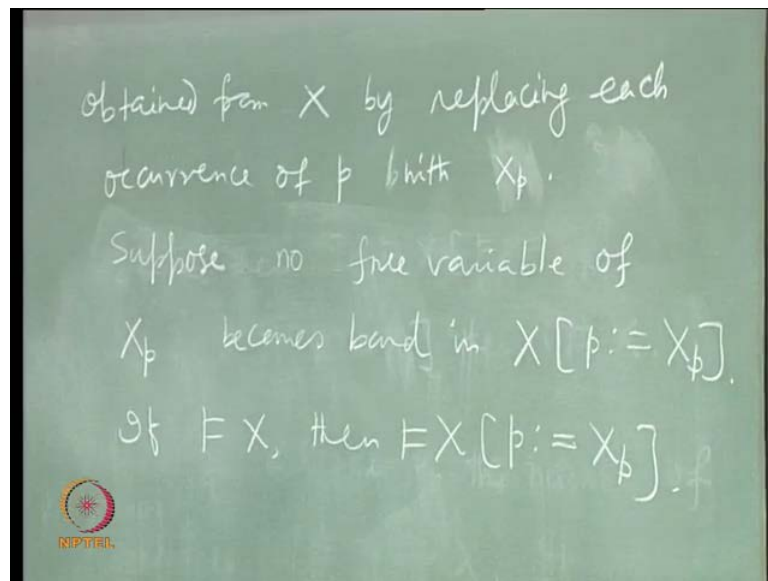 obtained from X by replacing each
ocurrence of p with Xp.
Suppose no free variable of
Xp becomes bound in X[p:=Xp].
If ⊨X, then ⊨X[p:=Xp].
NPTEL